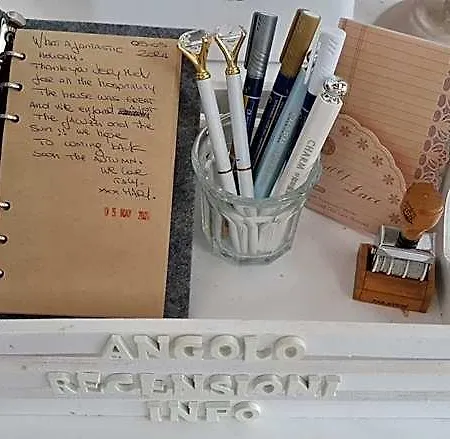 What a fantastic 05-05
Holiday. 2024
Thank you very much
for all the hospitality
The house was great
And we enjoyed
The jacuzzi and the
sun. We hope
To coming back
soon the autumn.
We love
Italy.
xxx Mary.
05 MAY 202
CHARM
Lace
ANGOLO
RECENSIONI
INFO